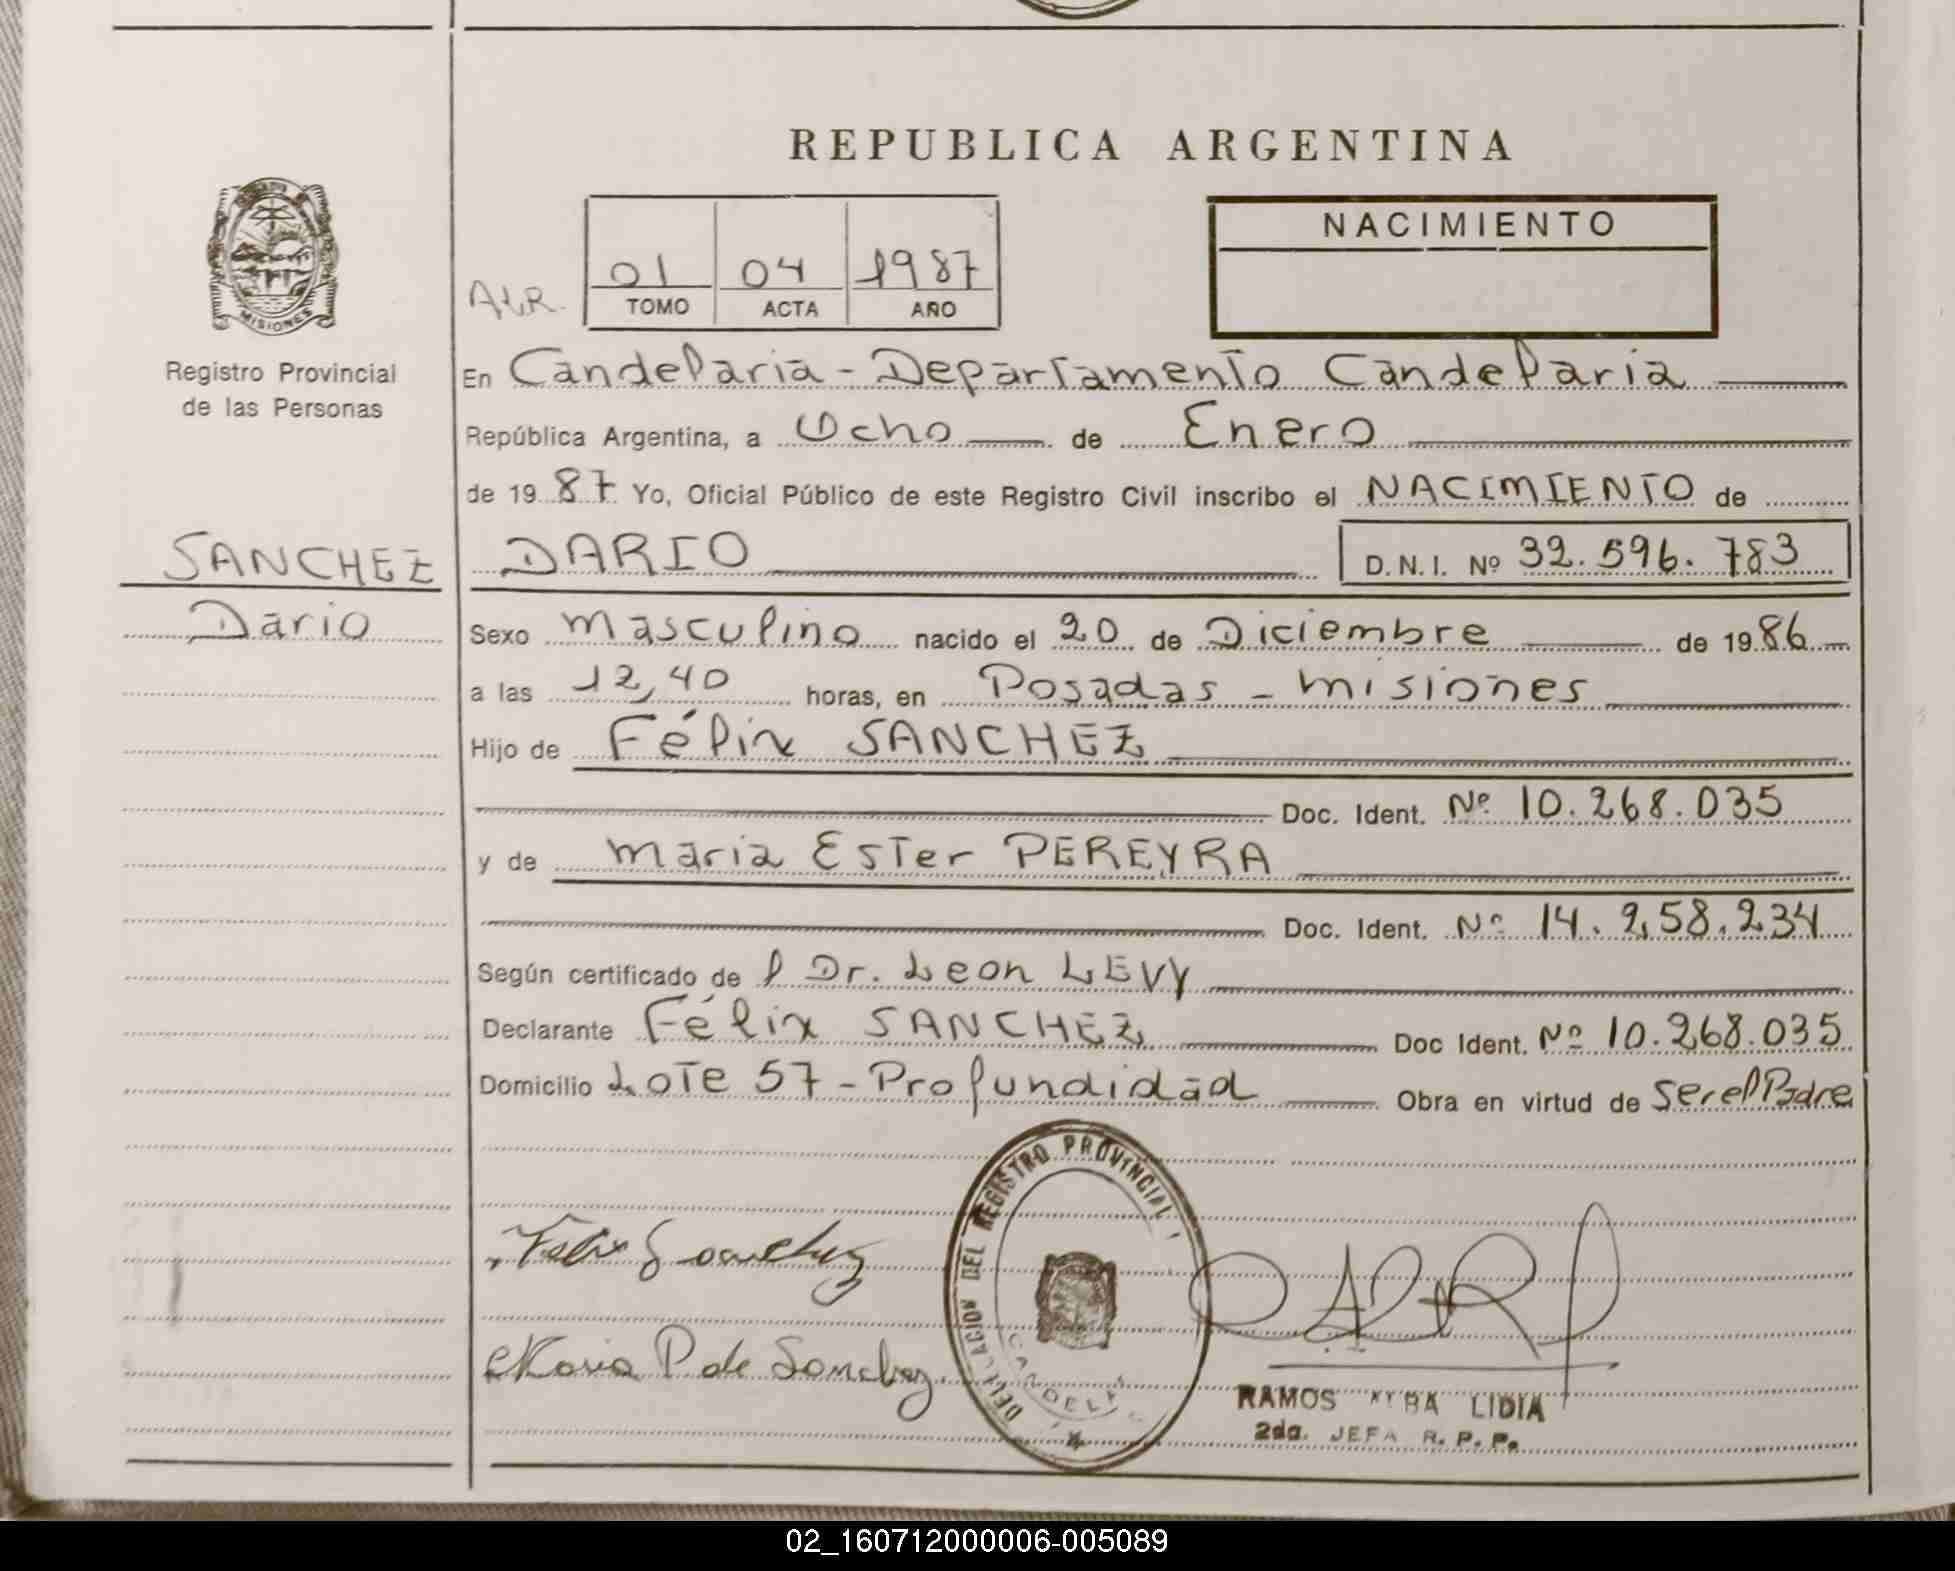 REPUBLICA ARGENTINA
MISIONES
Registro Provincial
de las Personas
ALR.
01 04 1987
TOMO ACTA AÑO
NACIMIENTO
En Candelaria - Departamento Candelaria
República Argentina, a Ocho de Enero
de 19 87 Yo, Oficial Público de este Registro Civil inscribo el NACIMIENTO de
SANCHEZ
DARIO D.N.I. Nº 32.596.783
Dario
Sexo masculino nacido el 20 de Diciembre de 19 86
a las 12,40 horas, en Posadas - misiones
Hijo de Félix SANCHEZ
Doc. Ident. Nº 10.268.035
y de maria Ester PEREYRA
Doc. Ident. Nº 14.258.234
Según certificado de l Dr. Leon LEVY
Declarante Félix SANCHEZ Doc Ident. Nº 10.268.035
Domicilio Lote 57 - Profundidad Obra en virtud de ser el Padre
Felix Sanchez
Maria P de Sanchez
DELEGACION DEL REGISTRO PROVINCIAL
RAMOS LIDIA
2da. JEFA R. P. P.
02_160712000006-005089